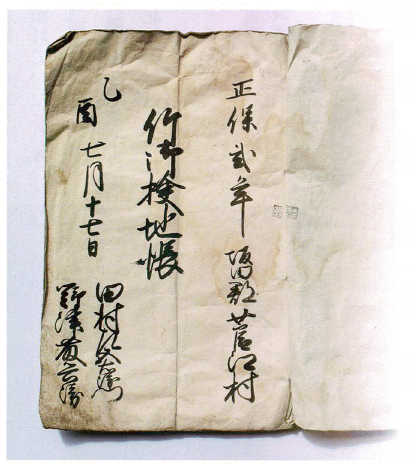 正保弐年 坂田郡菅江村
竹御検地帳
乙酉 七月十七日
田村
野津